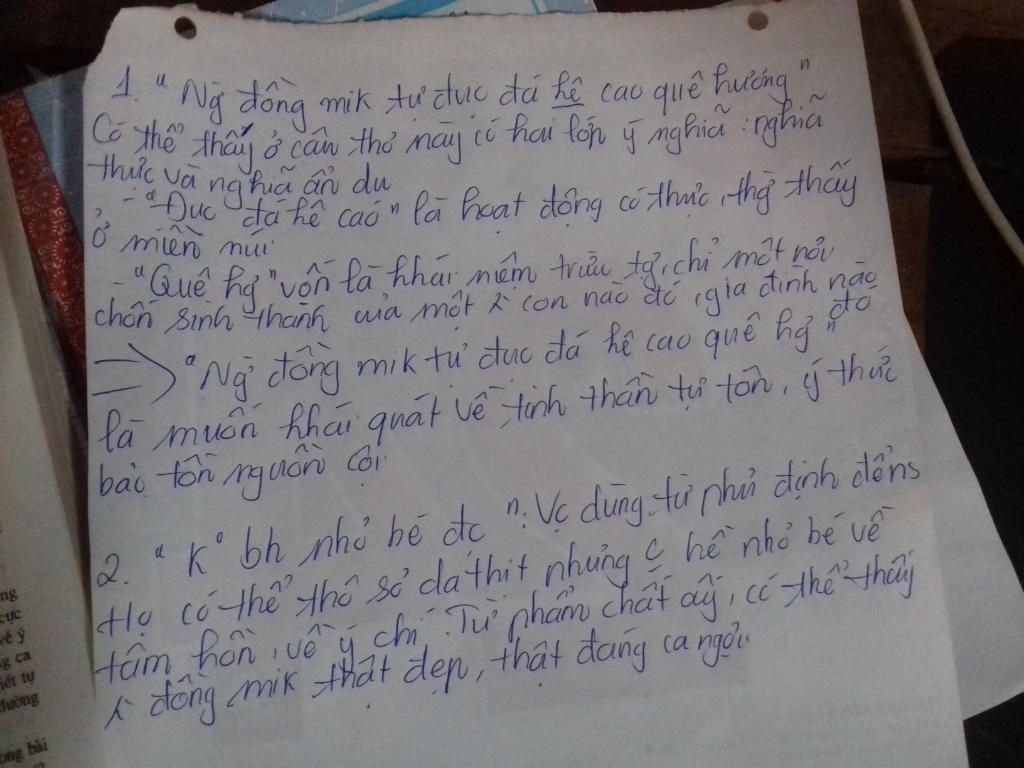 1. "Ng đồng mik tự đục đá kê cao quê hương"
Có thể thấy ở câu thơ này có hai lớp ý nghĩa: nghĩa
thực và nghĩa ẩn dụ
- "Đục đá kê cao" là hoạt động có thực, thg thấy
ở miền núi
- "Quê hg" vốn là khái niệm trừu tg, chỉ một nơi
chốn sinh thành của một con nào đó, gia đình nào
đó
=> "Ng đồng mik tự đục đá kê cao quê hg"
là muốn khái quát về tinh thần tự tôn, ý thức
bảo tồn nguồn cội
2. "K" bh nhỏ bé đc": Vc dùng từ phủ định
Họ có thể thô sơ da thịt nhưng hề nhỏ bé về
tâm hồn, về ý chí. Từ phẩm chất ấy, có thể thấy
đồng mik thật đẹp, thật đáng ca ngợi.
ng
cực
về ý
ng ca
iết tự
dưỡng
ong bài